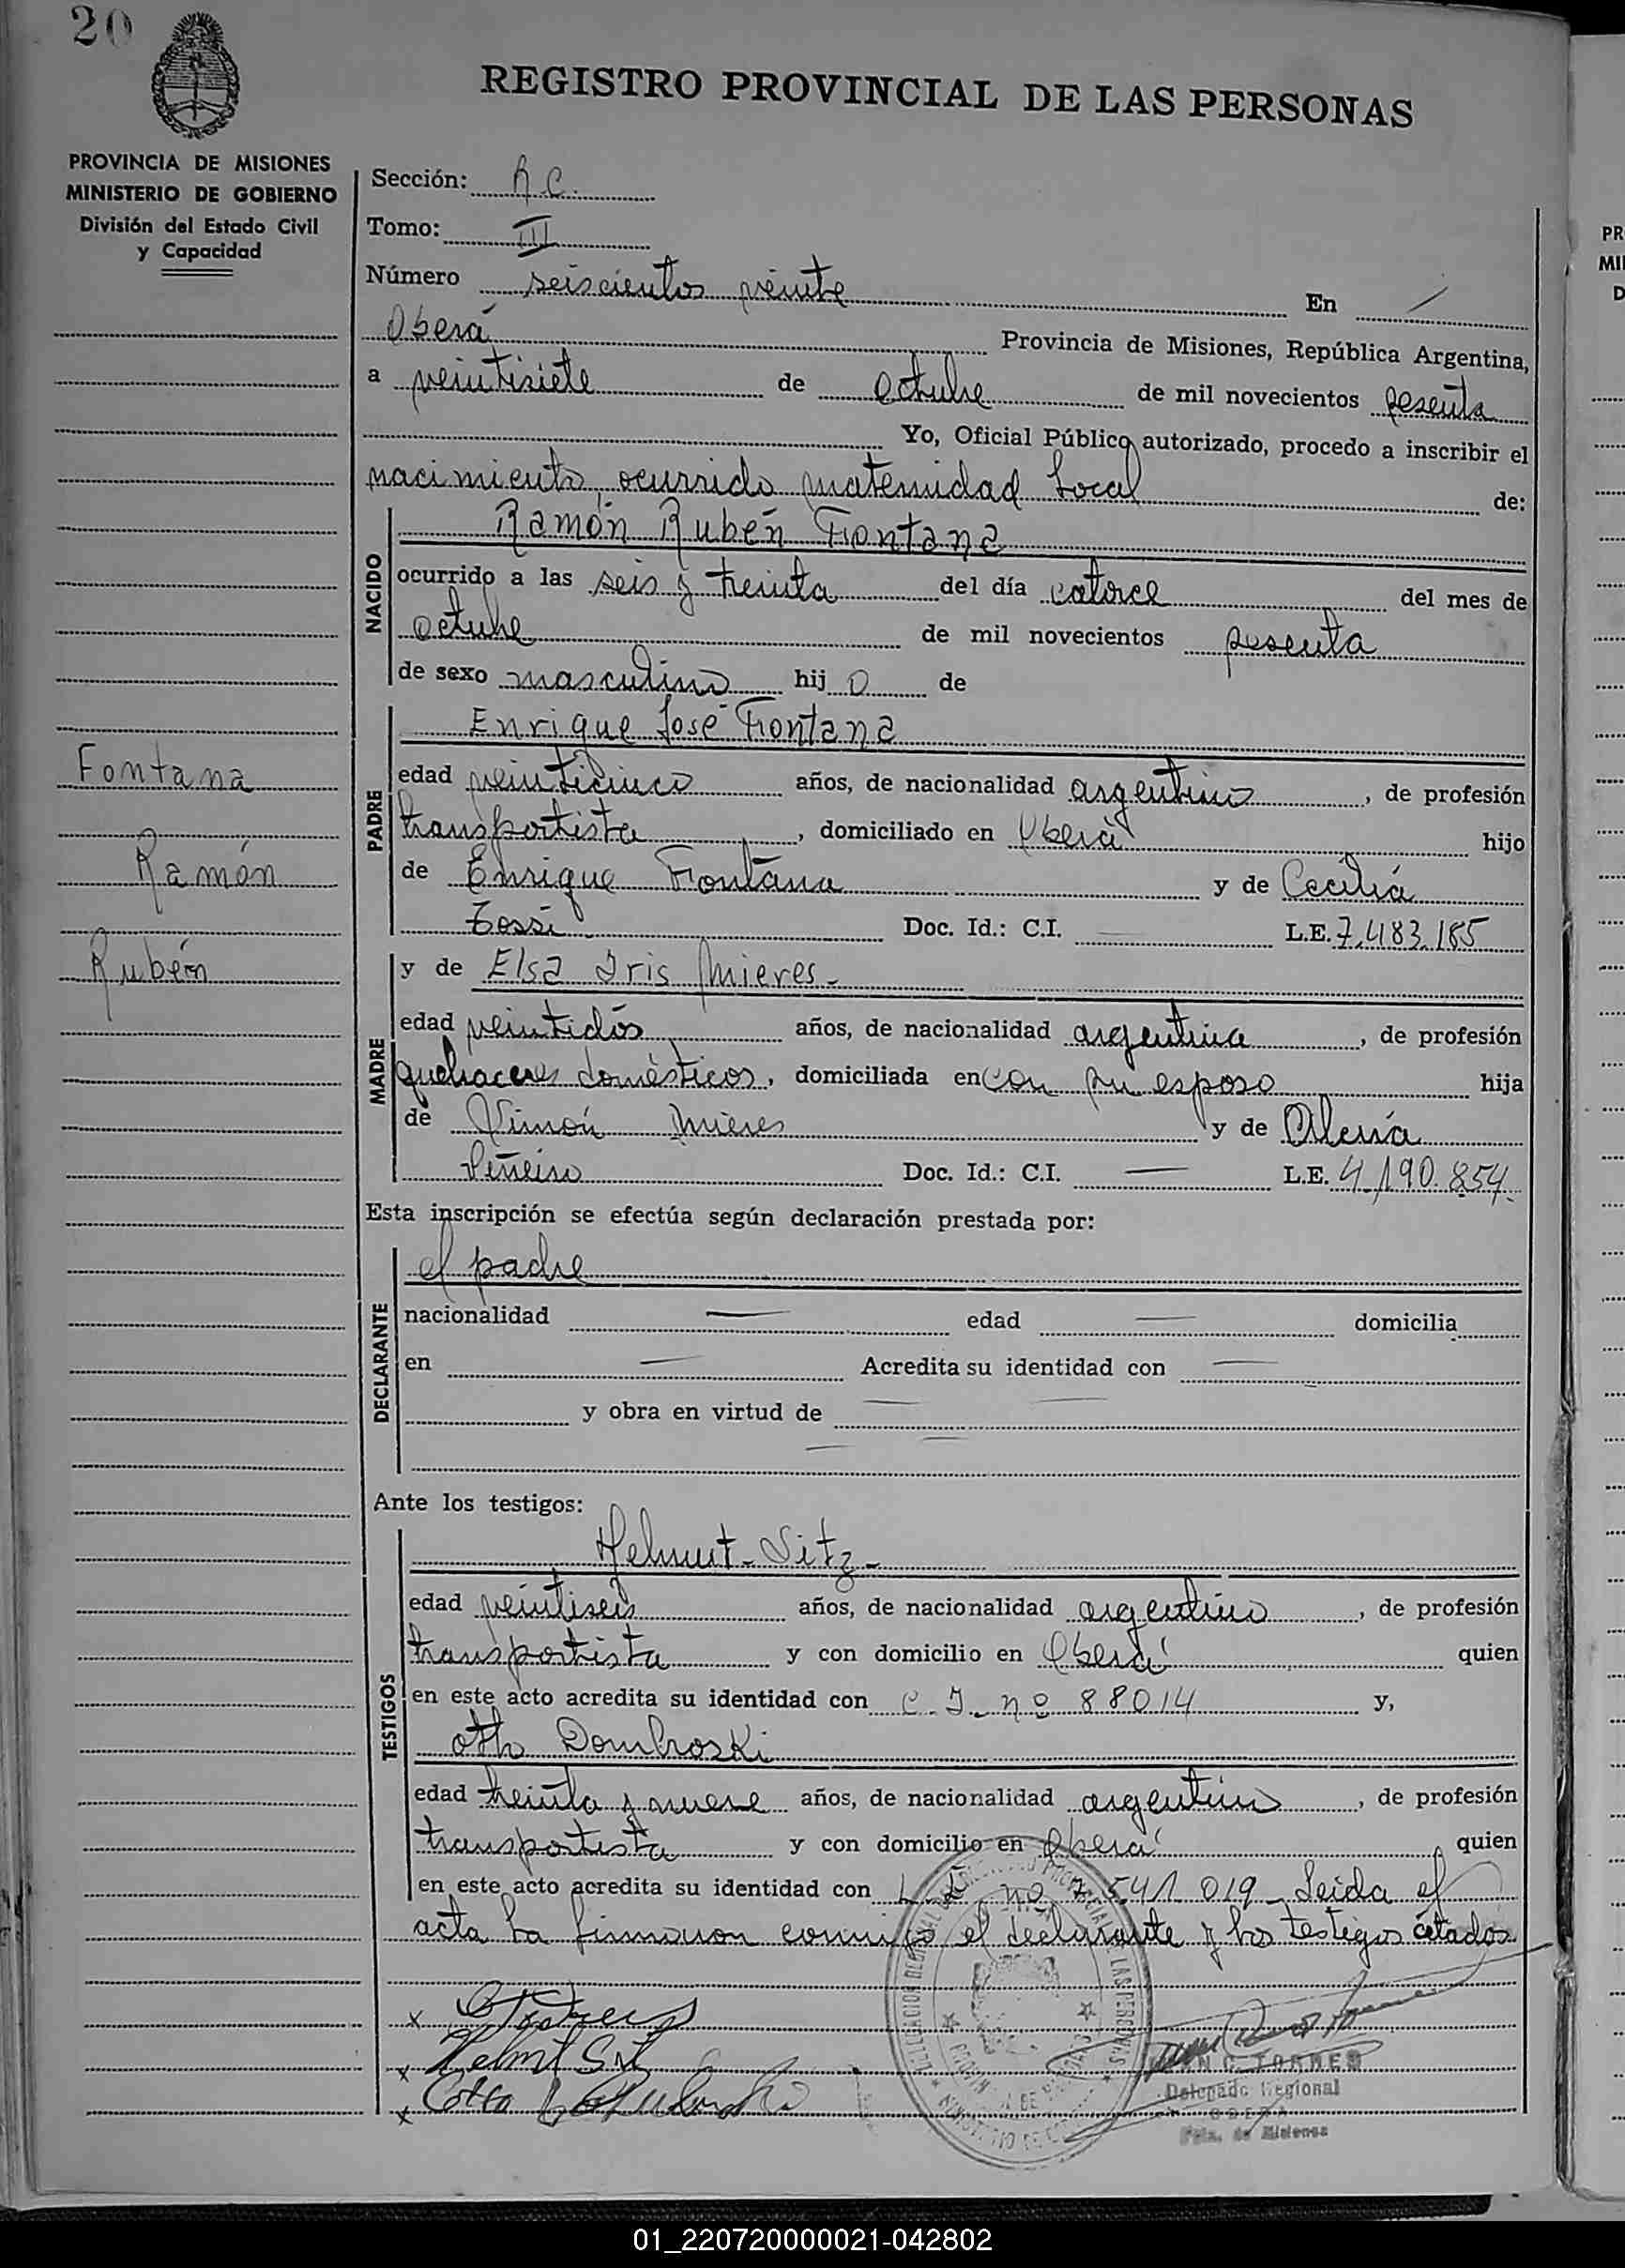 20
REGISTRO PROVINCIAL DE LAS PERSONAS
PROVINCIA DE MISIONES
MINISTERIO DE GOBIERNO
División del Estado Civil
y Capacidad
Sección: R.C.
Tomo: III
Número seiscientos veinte En
Oberá Provincia de Misiones, República Argentina,
a veintisiete de octubre de mil novecientos sesenta
Yo, Oficial Público autorizado, procedo a inscribir el
nacimiento ocurrido maternidad local de:
NACIDO
Ramón Rubén Fontana
ocurrido a las seis y treinta del día catorce del mes de
octubre de mil novecientos sesenta
de sexo masculino hij o de
PADRE
Enrique José Fontana
edad veinticinco años, de nacionalidad argentino, de profesión
transportista, domiciliado en Oberá hijo
de Enrique Fontana y de Cecilia
Doc. Id.: C.I. — L.E. 7.483.165
Fontana
Ramón
Rubén
MADRE
y de Elsa Iris Mieres -
edad veintidós años, de nacionalidad argentina, de profesión
quehaceres domésticos, domiciliada en con su esposo hija
de Simón Mieres y de
Piñeiro Doc. Id.: C.I. — L.E. 4.190.854
Esta inscripción se efectúa según declaración prestada por:
DECLARANTE
el padre
nacionalidad — edad — domicilia
en — Acredita su identidad con —
y obra en virtud de —
Ante los testigos:
TESTIGOS
Helmut - Sitz -
edad veintiseis años, de nacionalidad argentino, de profesión
transportista y con domicilio en Oberá quien
en este acto acredita su identidad con C.I. nº 88014 y,
Otto Dombroski
edad treinta y nueve años, de nacionalidad argentino, de profesión
transportista y con domicilio en Oberá quien
en este acto acredita su identidad con L.E. nº 7.541.019 - Leida el
acta la firmaron conmigo el declarante y los testigos citados
x
x Helmut Sitz
x Otto
TORRES
Delegado Regional
OBERA
Pcia. de Misiones
PR
MI
D
01_220720000021-042802